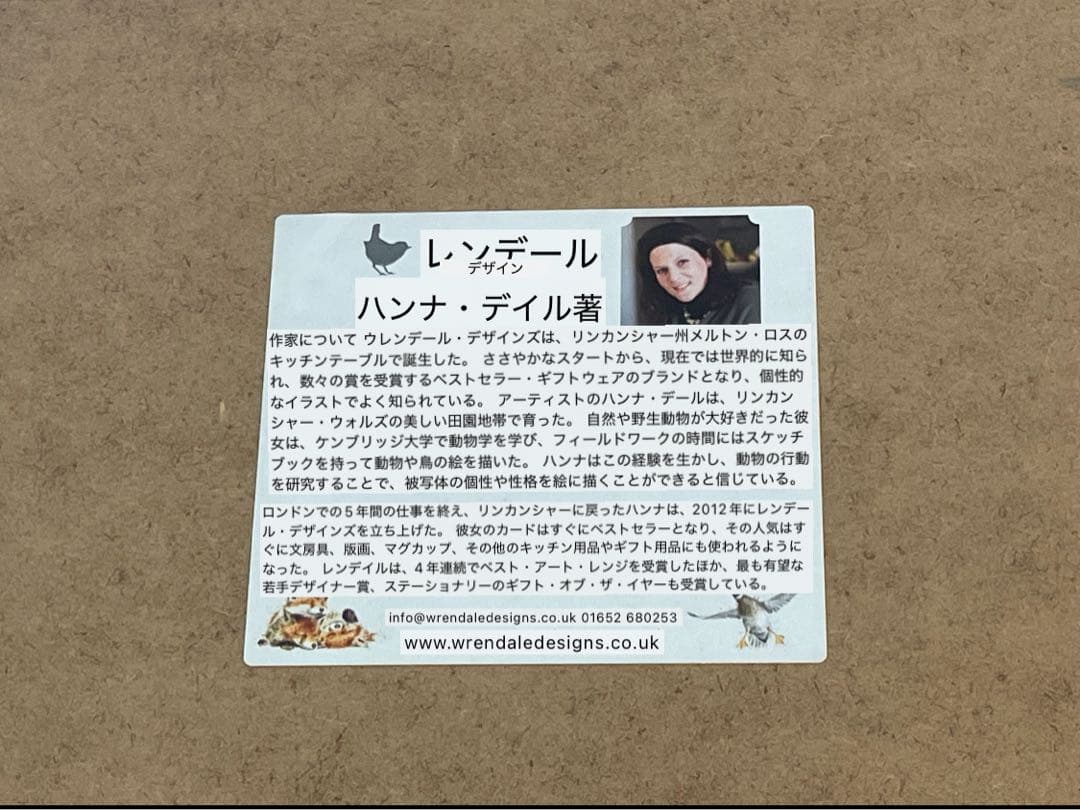 レンデール
デザイン
ハンナ・デイル著
作家について ウレンデール・デザインズは、リンカンシャー州メルトン・ロスの
キッチンテーブルで誕生した。 ささやかなスタートから、現在では世界的に知ら
れ、数々の賞を受賞するベストセラー・ギフトウェアのブランドとなり、個性的
なイラストでよく知られている。 アーティストのハンナ・デールは、リンカン
シャー・ウォルズの美しい田園地帯で育った。 自然や野生動物が大好きだった彼
女は、ケンブリッジ大学で動物学を学び、フィールドワークの時間にはスケッチ
ブックを持って動物や鳥の絵を描いた。 ハンナはこの経験を生かし、動物の行動
を研究することで、被写体の個性や性格を絵に描くことができると信じている。
ロンドンでの5年間の仕事を終え、リンカンシャーに戻ったハンナは、2012年にレンデー
ル・デザインズを立ち上げた。 彼女のカードはすぐにベストセラーとなり、その人気はす
ぐに文房具、版画、マグカップ、その他のキッチン用品やギフト用品にも使われるように
なった。 レンデイルは、4年連続でベスト・アート・レンジを受賞したほか、最も有望な
若手デザイナー賞、ステーショナリーのギフト・オブ・ザ・イヤーも受賞している。
info@wrendaledesigns.co.uk 01652 680253
www.wrendaledesigns.co.uk